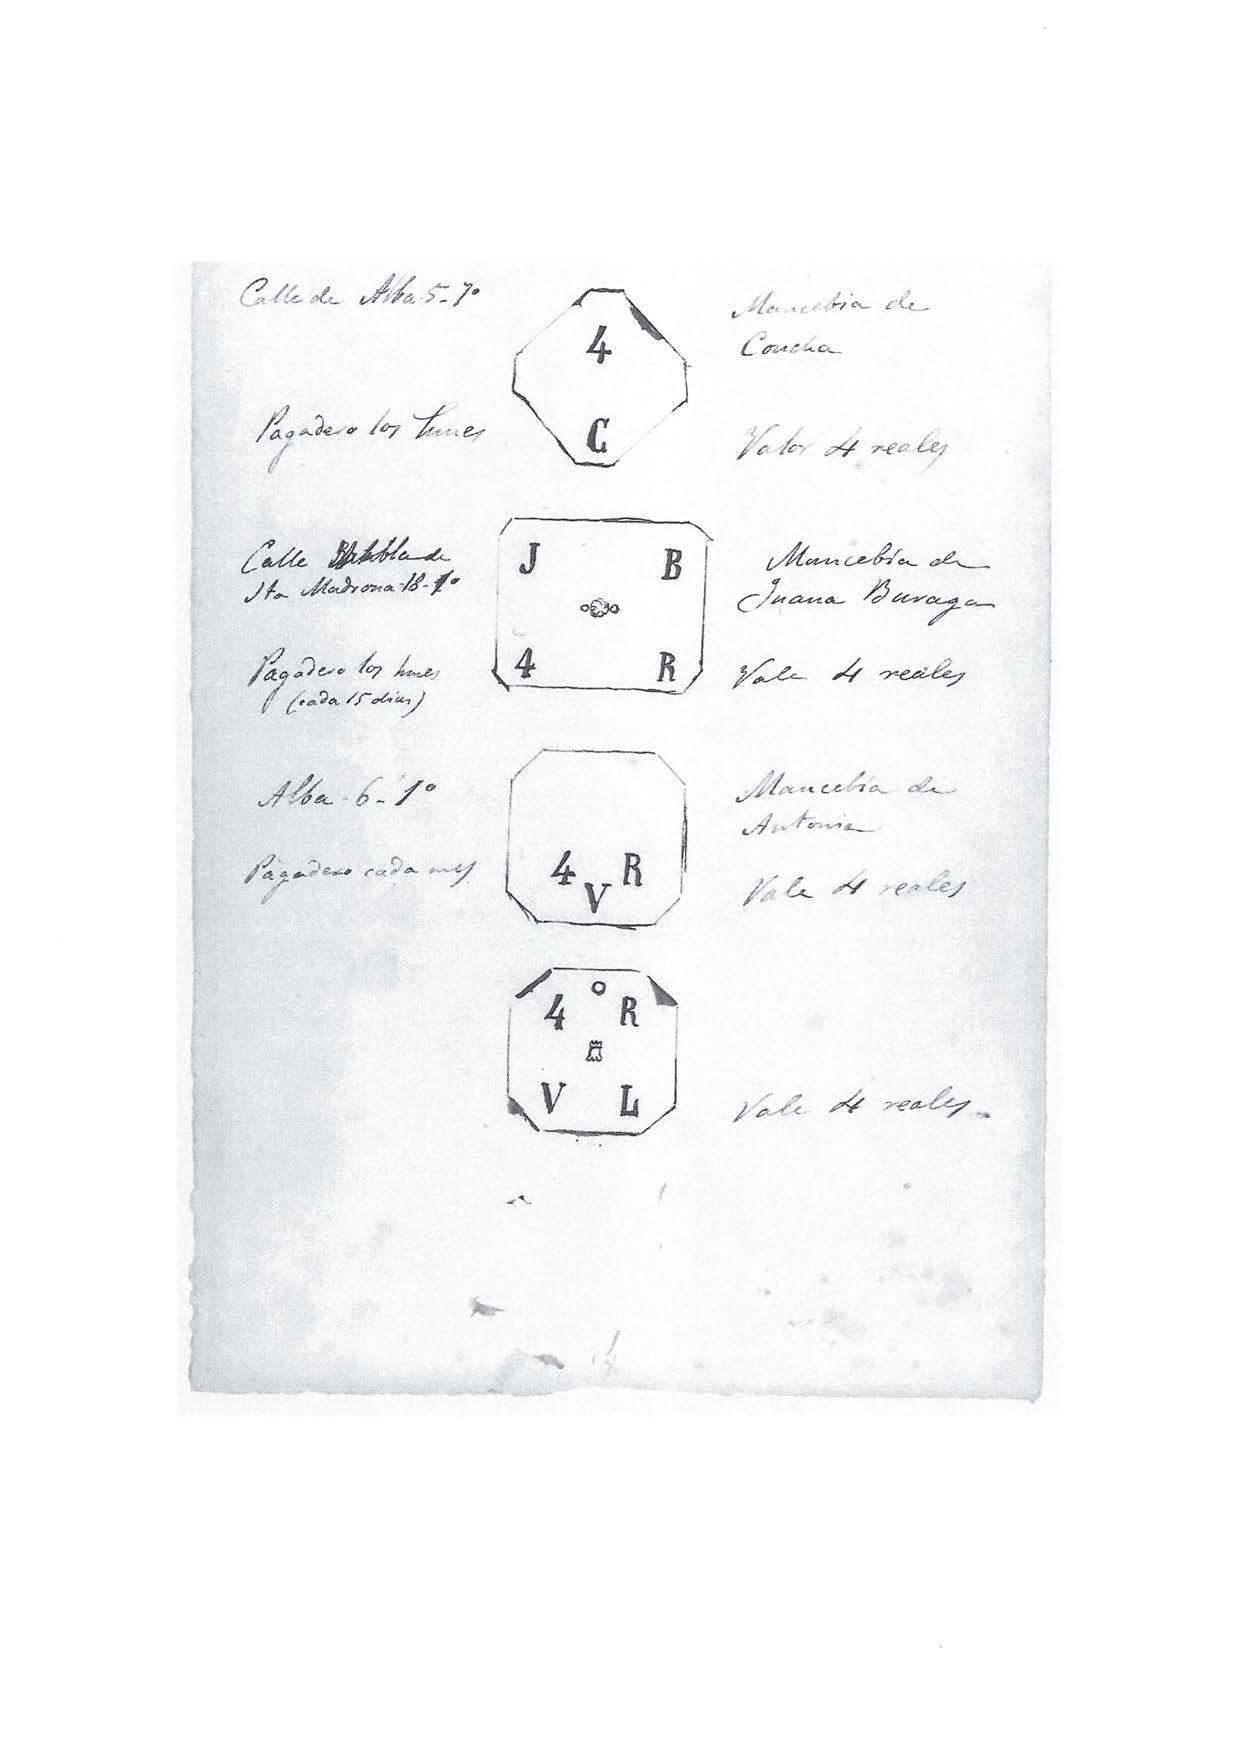 Calle de Alba-5-1º
4
C
Mancebia de
Concha
Pagadero los lunes
Valor 4 reales
Calle
Sta Madrona-18-1º
J B
4 R
Mancebia de
Juana Buraga
Pagadero los lunes
(cada 15 dias)
Vale 4 reales
Alba-6-1º
4 R
V
Mancebia de
Antonia
Pagadero cada mes
Vale 4 reales
4 R
V L
Vale 4 reales